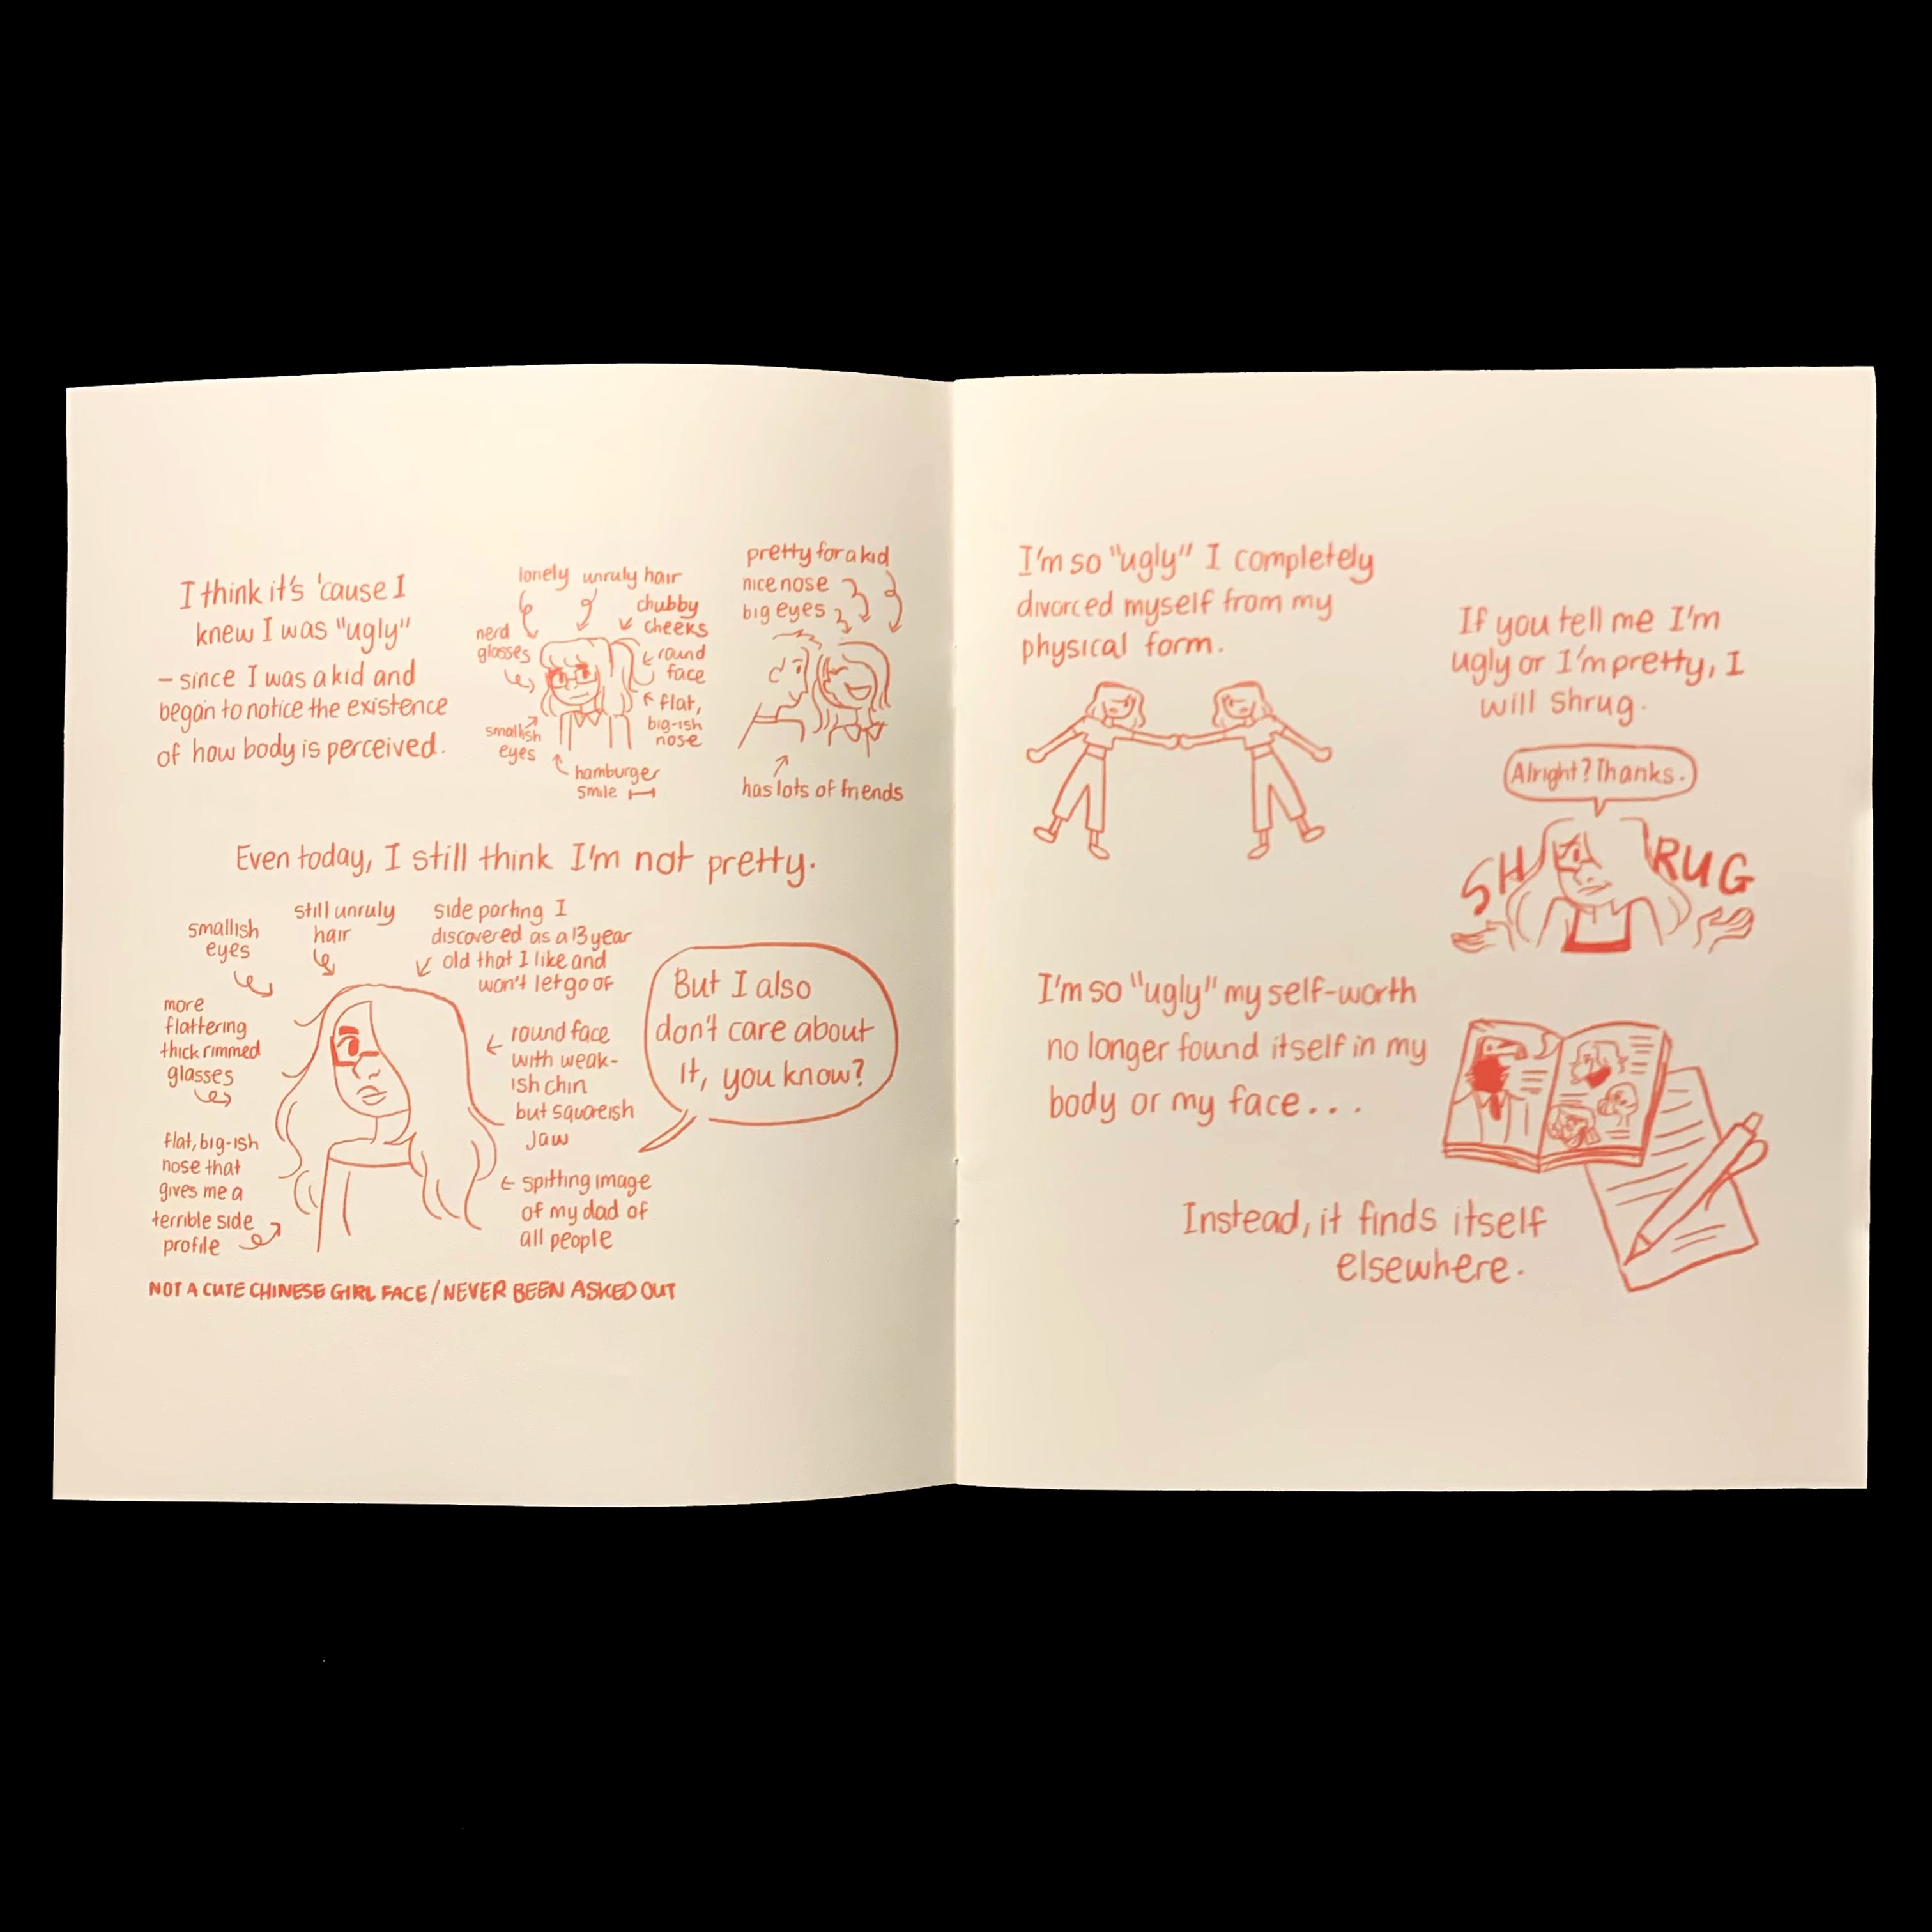 I think it's 'cause I
knew I was "ugly"
– since I was a kid and
began to notice the existence
of how body is perceived.
lonely
unruly hair
chubby
cheeks
nerd
glasses
round
face
flat,
big-ish
nose
smallish
eyes
hamburger
smile
pretty for a kid
nice nose
big eyes
has lots of friends
Even today, I still think I'm not pretty.
smallish
eyes
still unruly
hair
side parting I
discovered as a 13 year
old that I like and
won't let go of
more
flattering
thick rimmed
glasses
round face
with weak-
ish chin
but squareish
jaw
flat, big-ish
nose that
gives me a
terrible side
profile
spitting image
of my dad of
all people
But I also
don't care about
it, you know?
NOT A CUTE CHINESE GIRL FACE / NEVER BEEN ASKED OUT
I'm so "ugly" I completely
divorced myself from my
physical form.
If you tell me I'm
ugly or I'm pretty, I
will shrug.
Alright? Thanks.
SHRUG
I'm so "ugly" my self-worth
no longer found itself in my
body or my face...
Instead, it finds itself
elsewhere.